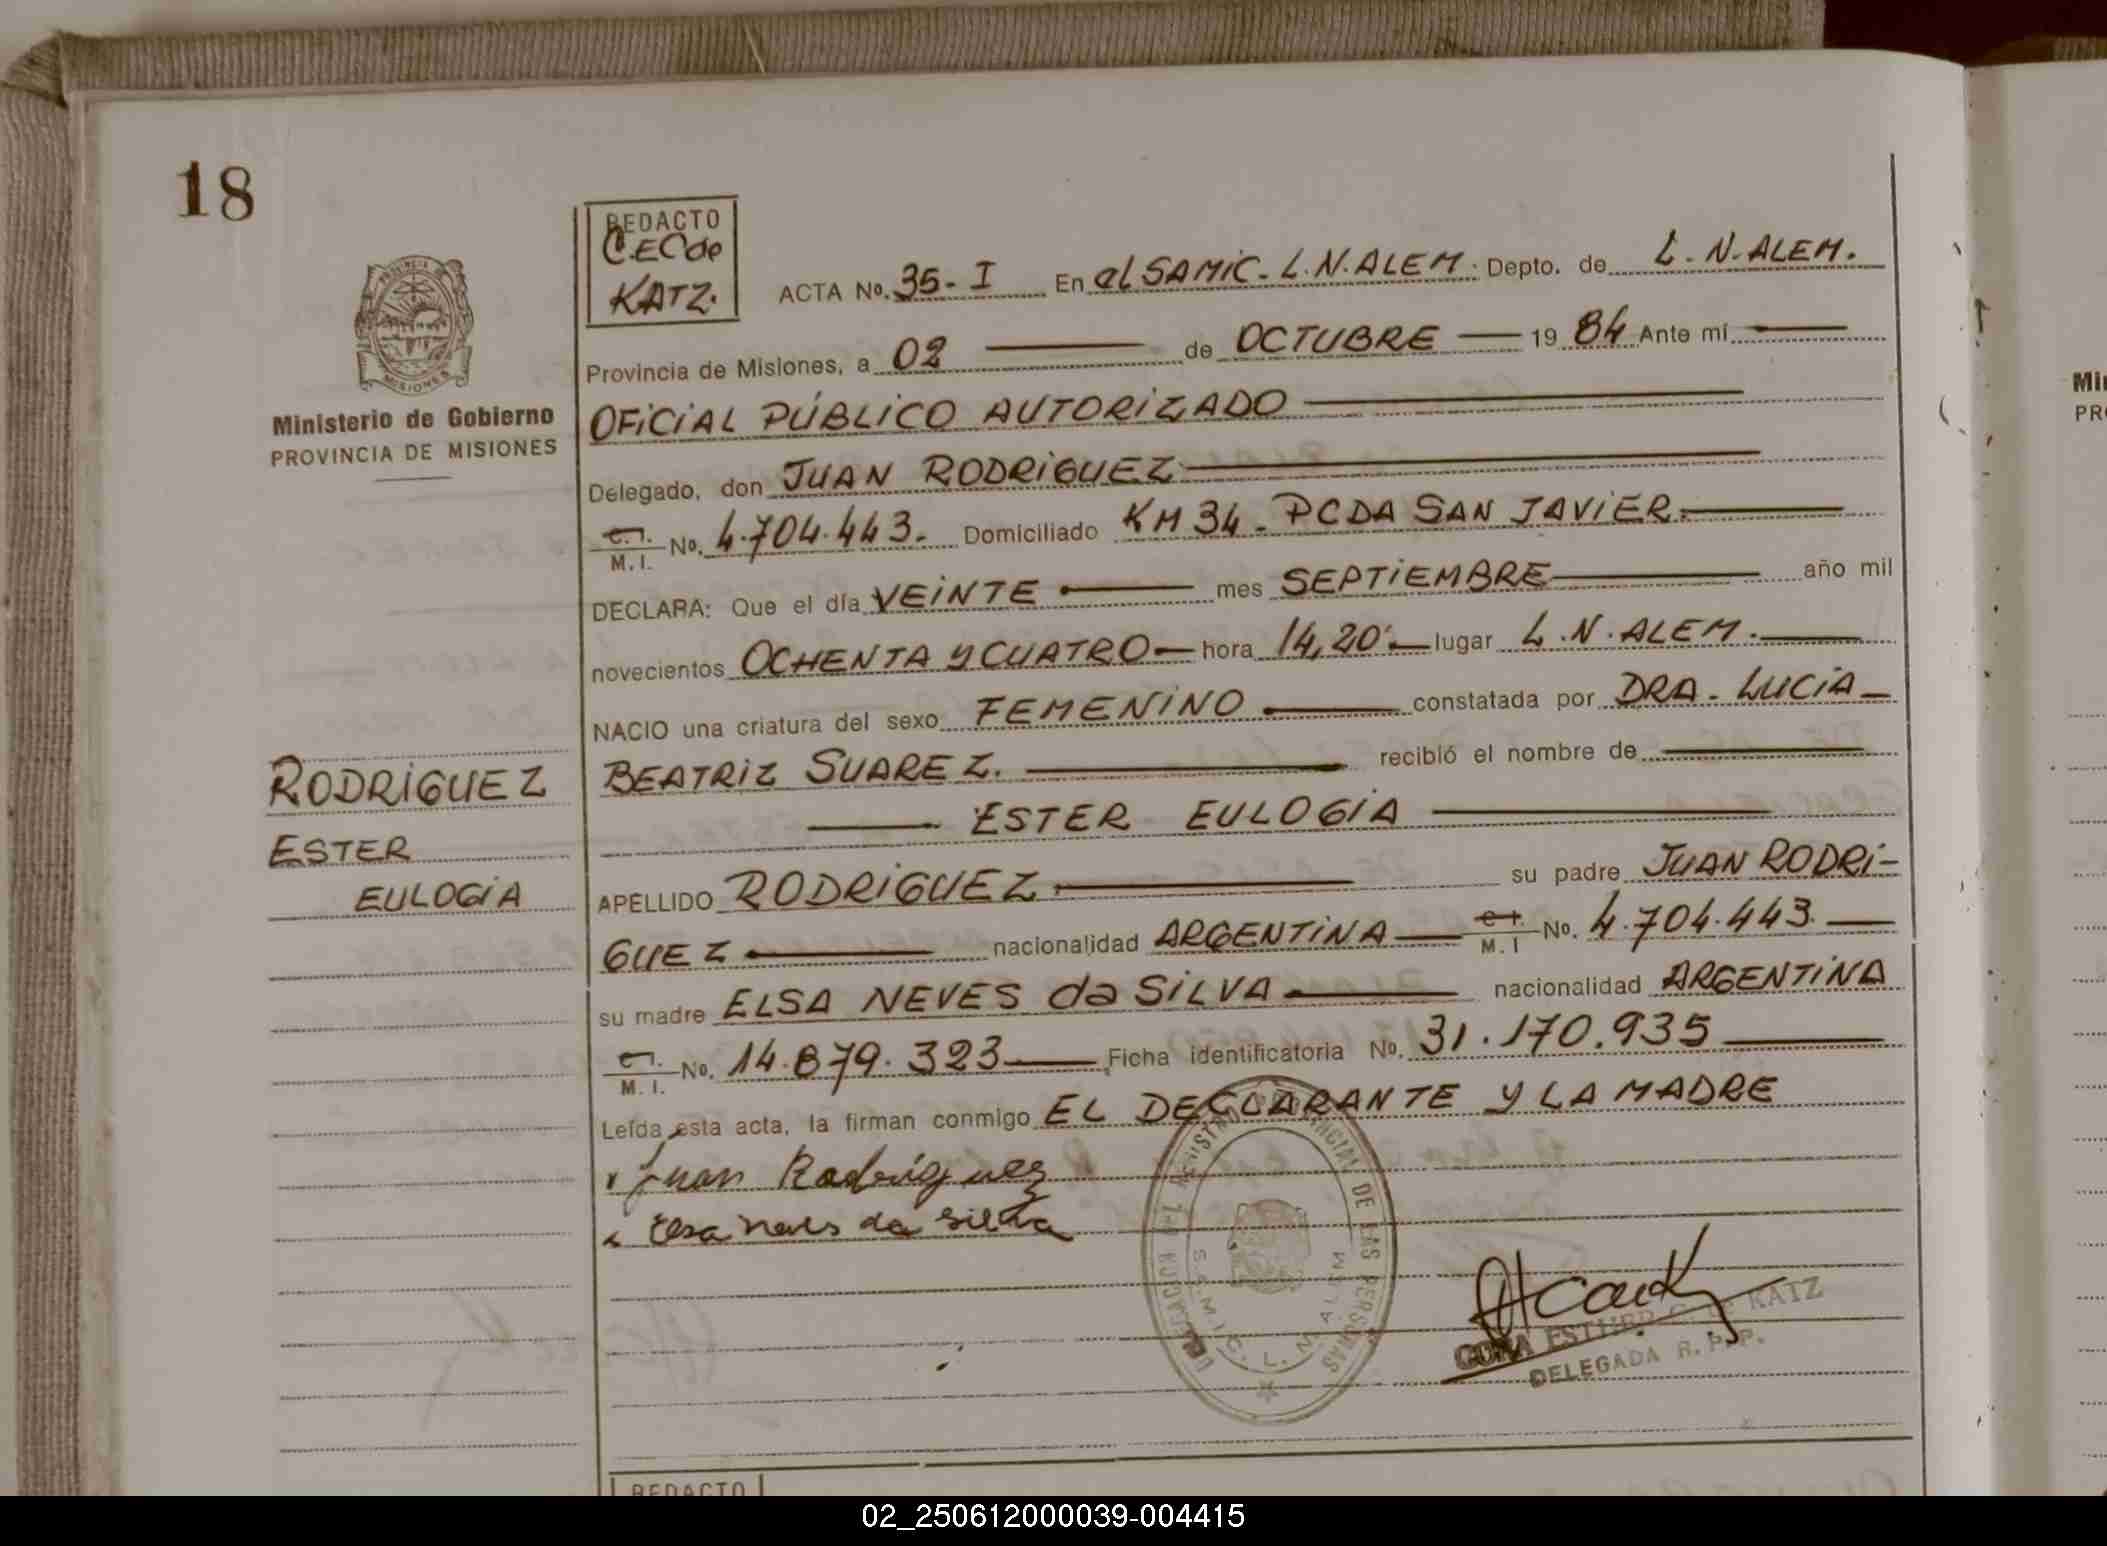 18
REDACTO
C.EC de
KATZ.
ACTA No. 35-I En el SAMIC. L.N.ALEM. Depto. de L.N.ALEM.
Provincia de Misiones, a 02 de OCTUBRE 1984 Ante mí
OFICIAL PÚBLICO AUTORIZADO
Delegado, don JUAN RODRIGUEZ
C.I.
M.I. No. 4.704.443. Domiciliado KM 34 - PCDA SAN JAVIER.
DECLARA: Que el día VEINTE mes SEPTIEMBRE año mil
novecientos OCHENTA Y CUATRO hora 14,20' lugar L.N.ALEM.
NACIO una criatura del sexo FEMENINO constatada por DRA. LUCIA
BEATRIZ SUAREZ. recibió el nombre de
ESTER EULOGIA
APELLIDO RODRIGUEZ su padre JUAN RODRI-
GUEZ nacionalidad ARGENTINA C.I.
M.I No. 4.704.443.
su madre ELSA NEVES da SILVA nacionalidad ARGENTINA
C.I.
M.I. No. 14.879.323 Ficha identificatoria No. 31.170.935
Leída esta acta, la firman conmigo EL DECLARANTE Y LA MADRE
Juan Rodriguez
Elsa neves da silva
PROVINCIA
MISIONES
Ministerio de Gobierno
PROVINCIA DE MISIONES
RODRIGUEZ
ESTER
EULOGIA
PROVINCIAL DE LAS PERSONAS
S.A.M.I.C. L. N. ALEM
ESTHER C. de KATZ
DELEGADA R.P.P.
REDACTO
Mi
PR
02_250612000039-004415